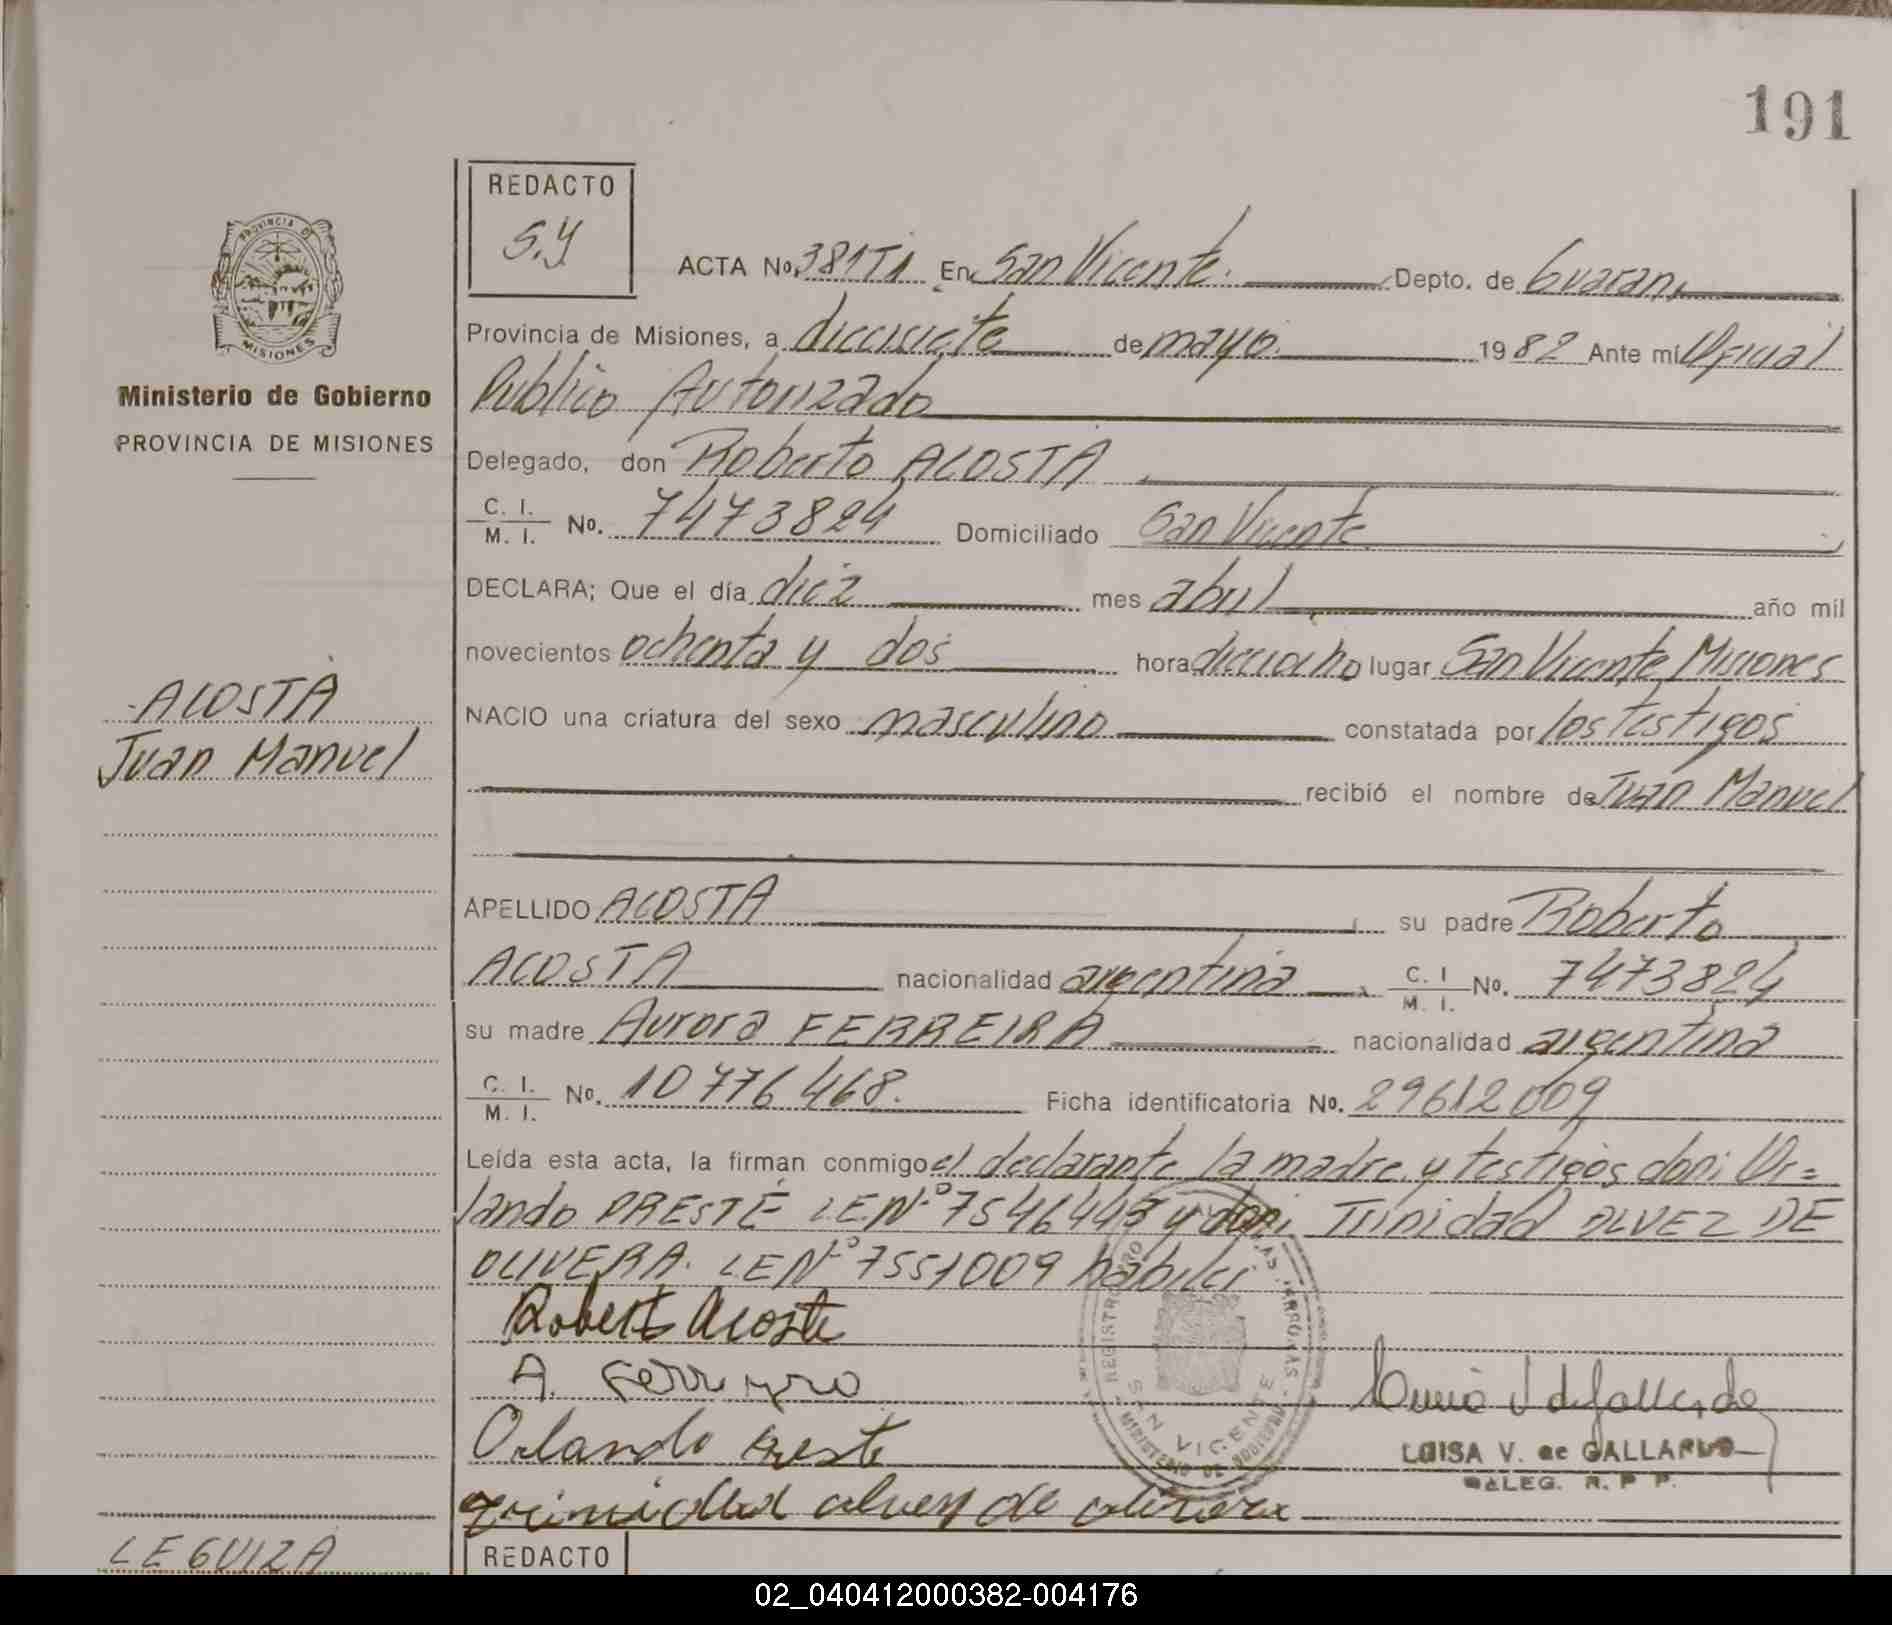 191
REDACTO
S.Y
ACTA No. 381T1 En San Vicente. Depto. de Guaraní
Provincia de Misiones, a diecisiete de mayo. 1982 Ante mí Oficial
Publico Autorizado
Delegado, don Roberto ACOSTA
C. I. / M. I. No. 7473824 Domiciliado San Vicente
DECLARA; Que el día diez mes abril año mil
novecientos ochenta y dos hora dieciocho lugar San Vicente Misiones
NACIO una criatura del sexo masculino constatada por los testigos
recibió el nombre de Juan Manuel
APELLIDO ACOSTA su padre Roberto
ACOSTA nacionalidad argentina C. I / M. I. No. 7473824
su madre Aurora FERREIRA nacionalidad argentina
C. I. / M. I. No. 10776468. Ficha identificatoria No. 29612009
Leída esta acta, la firman conmigo el declarante la madre y testigos don: Or=
lando PRESTE L.E.Nº 7546445 y don: Trinidad ALVEZ DE
OLIVERA. LENº 7551009 habiles
Roberto Acosta
A. Ferreyro
Orlando Preste
trinidad alvez de olivera
REGISTRO
SAN VICENTE
MINISTERIO DE GOBIERNO - MISIONES
LUISA V. de GALLARDO
DELEG. R. P P.
PROVINCIA DE
MISIONES
Ministerio de Gobierno
PROVINCIA DE MISIONES
ACOSTA
Juan Manuel
LEGUIZA
REDACTO
02_040412000382-004176